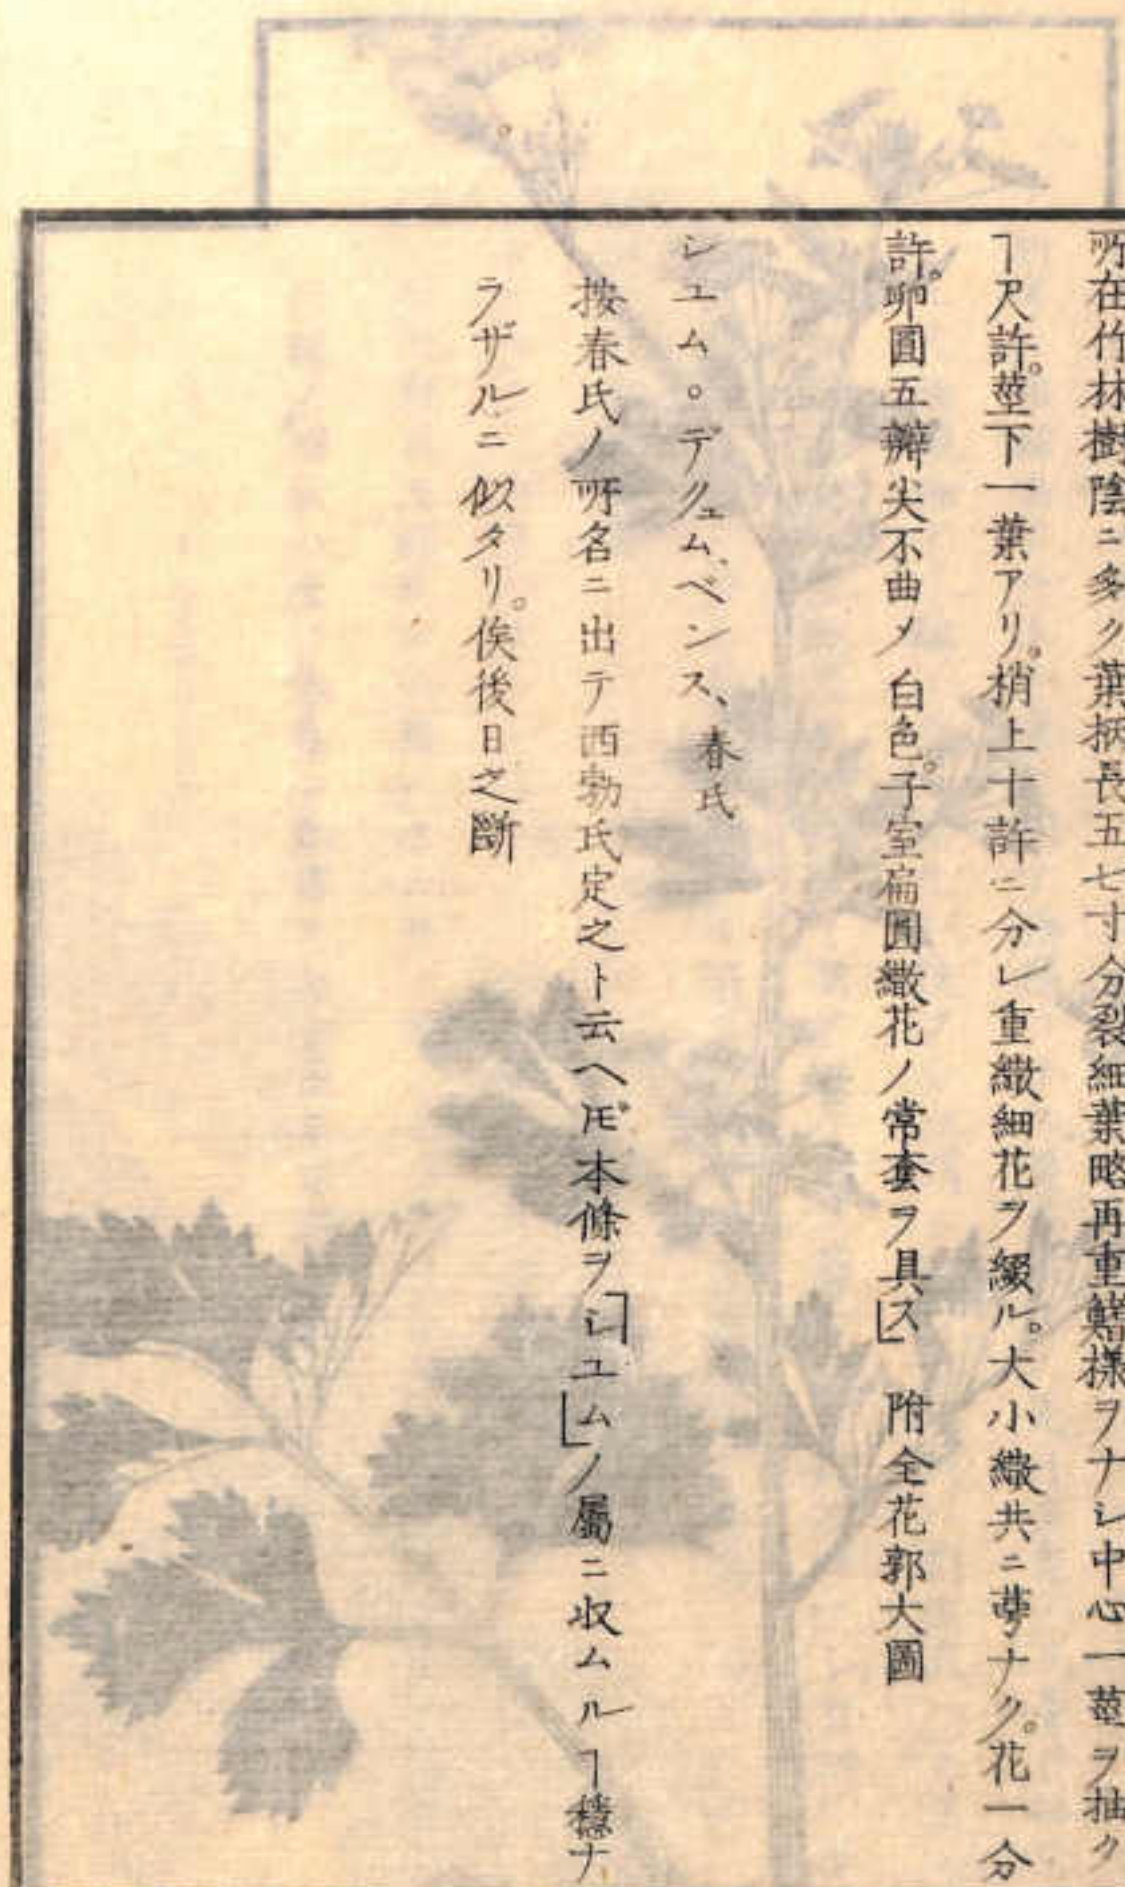 所在竹林樹陰ニ多ク葉柄長五七寸分裂細葉略再重鰭様ヲナシ中心一莖ヲ抽ク
ヿ尺許。莖下一葉アリ。梢上十許ニ分レ重繖細花ヲ綴ル。大小繖共ニ萼ナク。花一分
許。卵圓五瓣尖不曲メ白色。子室扁圓繖花ノ常套ヲ具ス」 附全花郭大圖
シユム。デクュムベンス、春氏
按春氏ノ所名ニ出テ西勃氏定之ト云ヘ𪜈本條ヲ「シユム」ノ屬ニ収ムルヿ穩ナ
ラザルニ似タリ。俟後日之斷